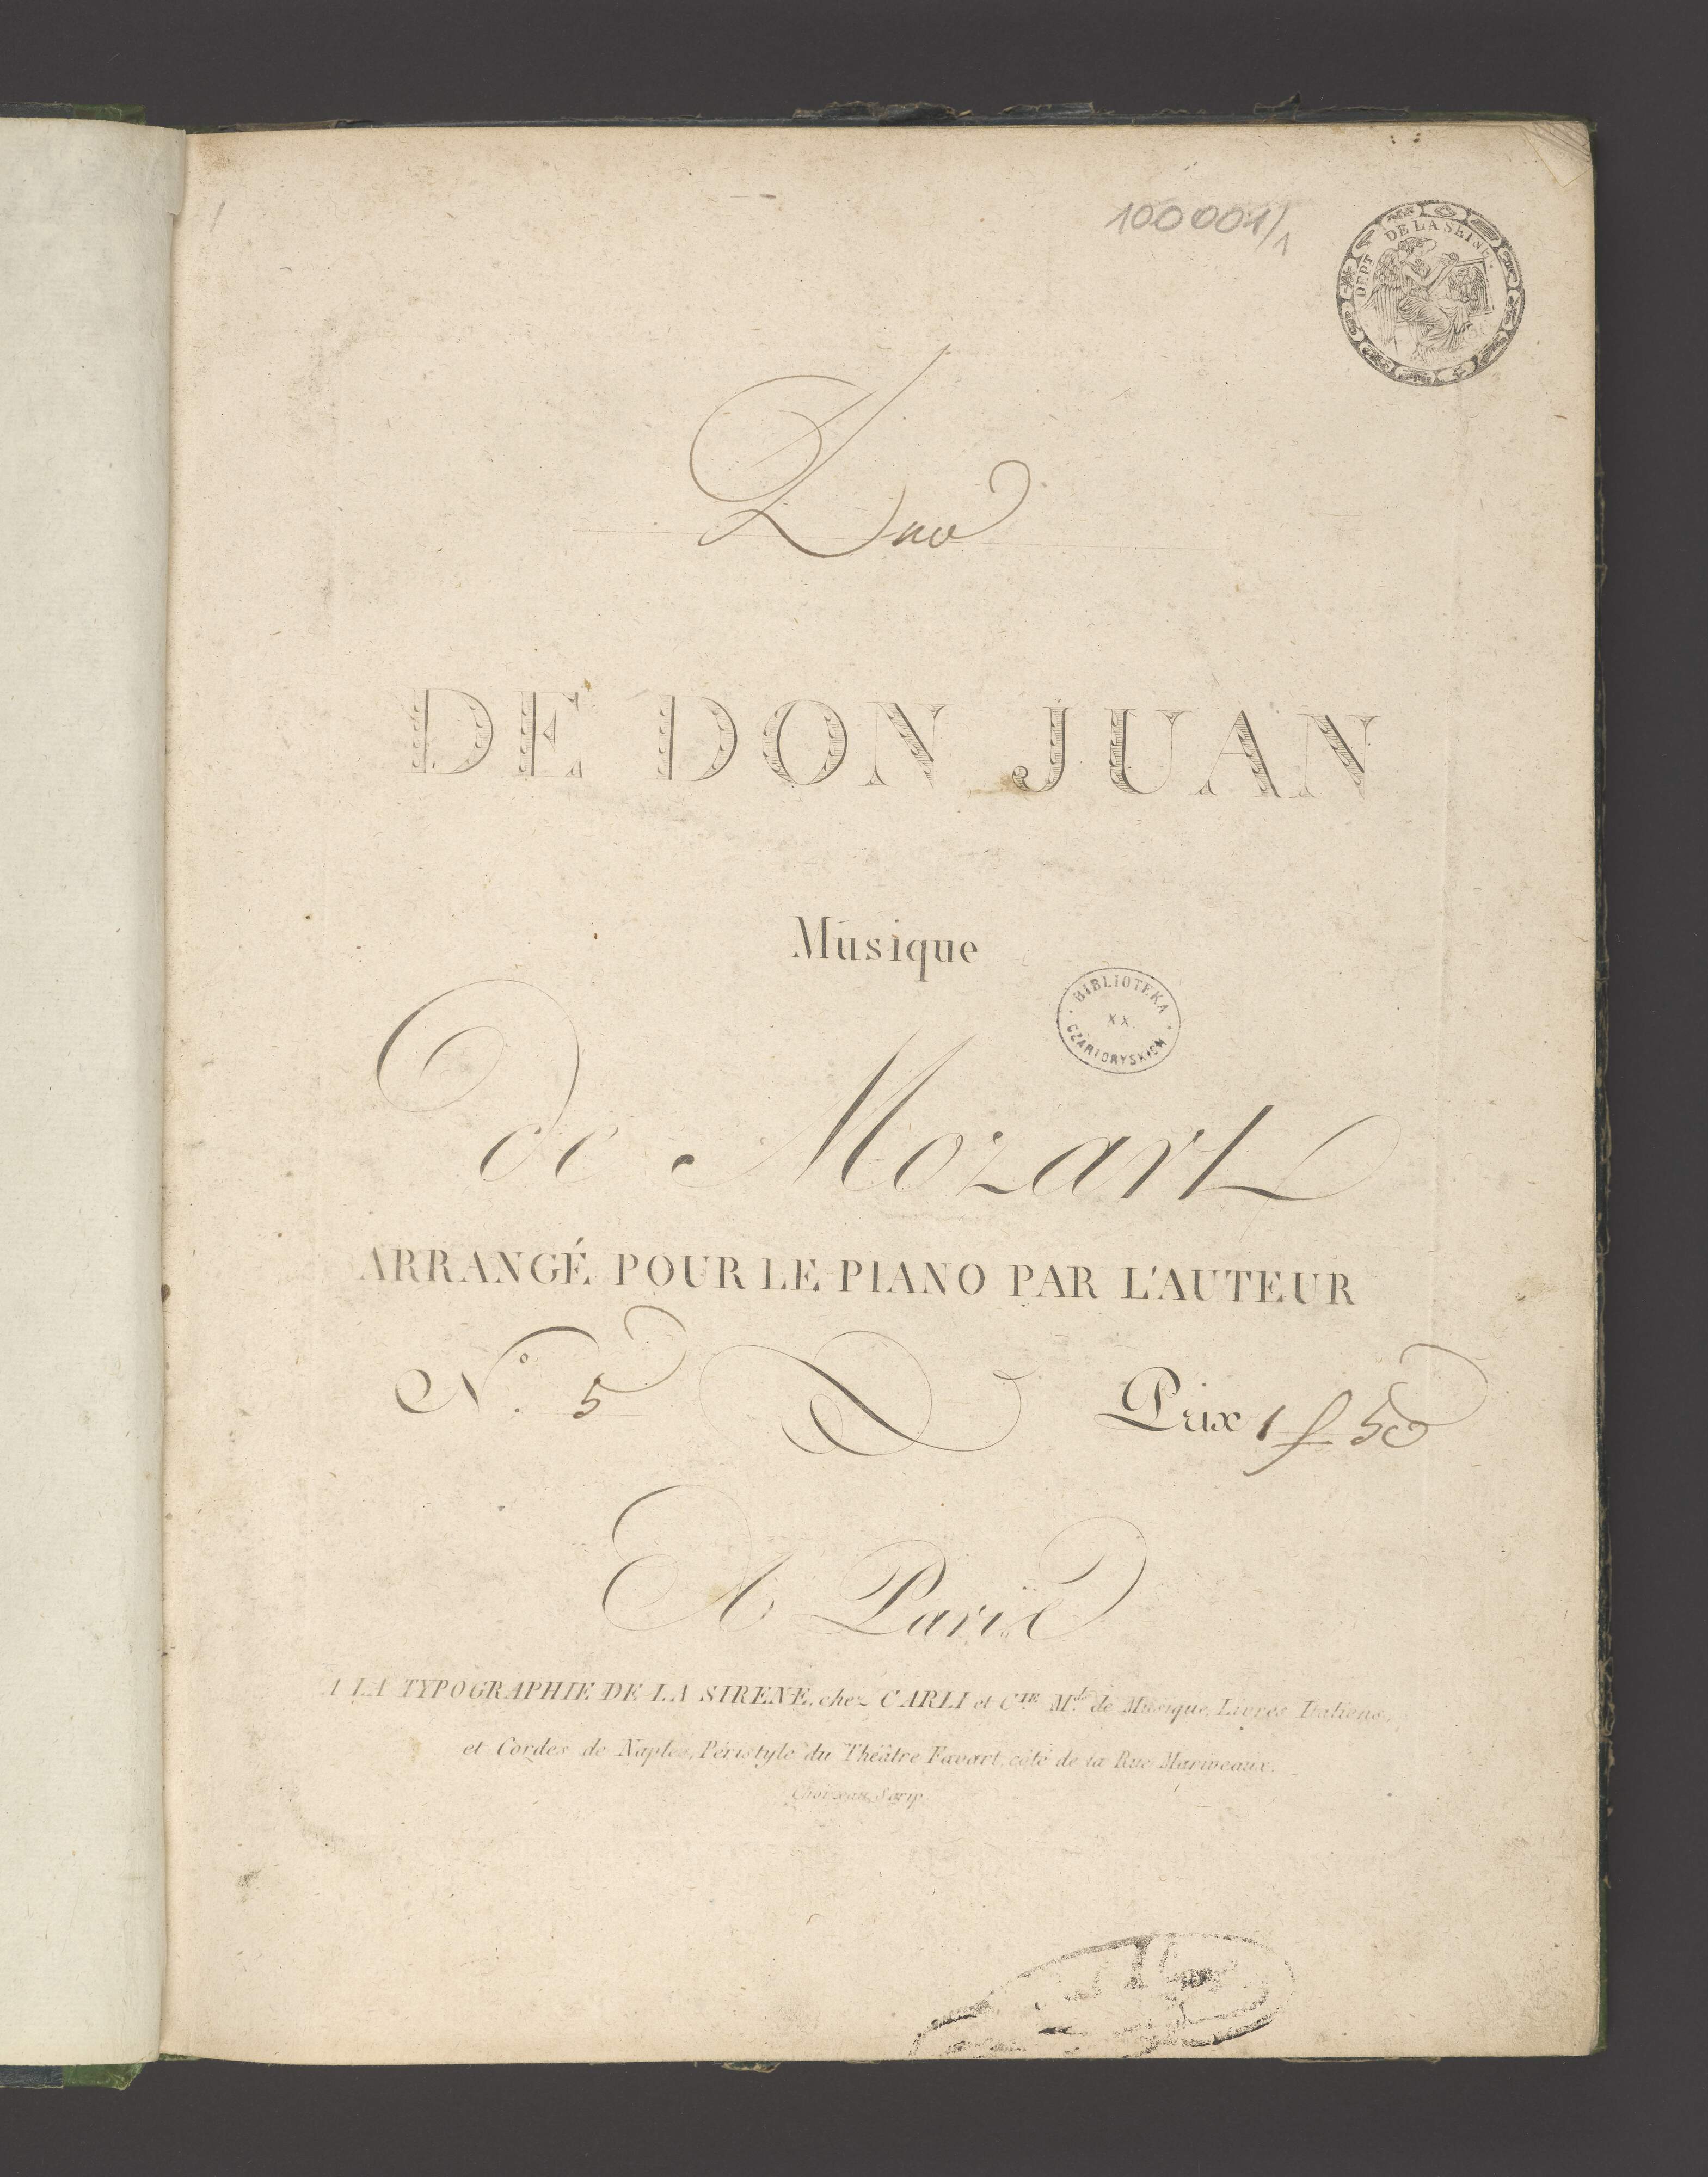 100001/1
DEPT DE LA SEINE.
Duo
DE DON JUAN
Musique
BIBLIOTEKA
XX.
CZARTORYSKICH
de Mozart
ARRANGÉ POUR LE PIANO PAR L'AUTEUR
N.° 5 Prix 1 f 50
A Paris
A LA TYPOGRAPHIE DE LA SIRENE, chez CARLI et C.TE M.ds de Musique, Livres Italiens,
et Cordes de Naples, Péristyle du Théâtre Favart, côté de la Rue Mariveaux.